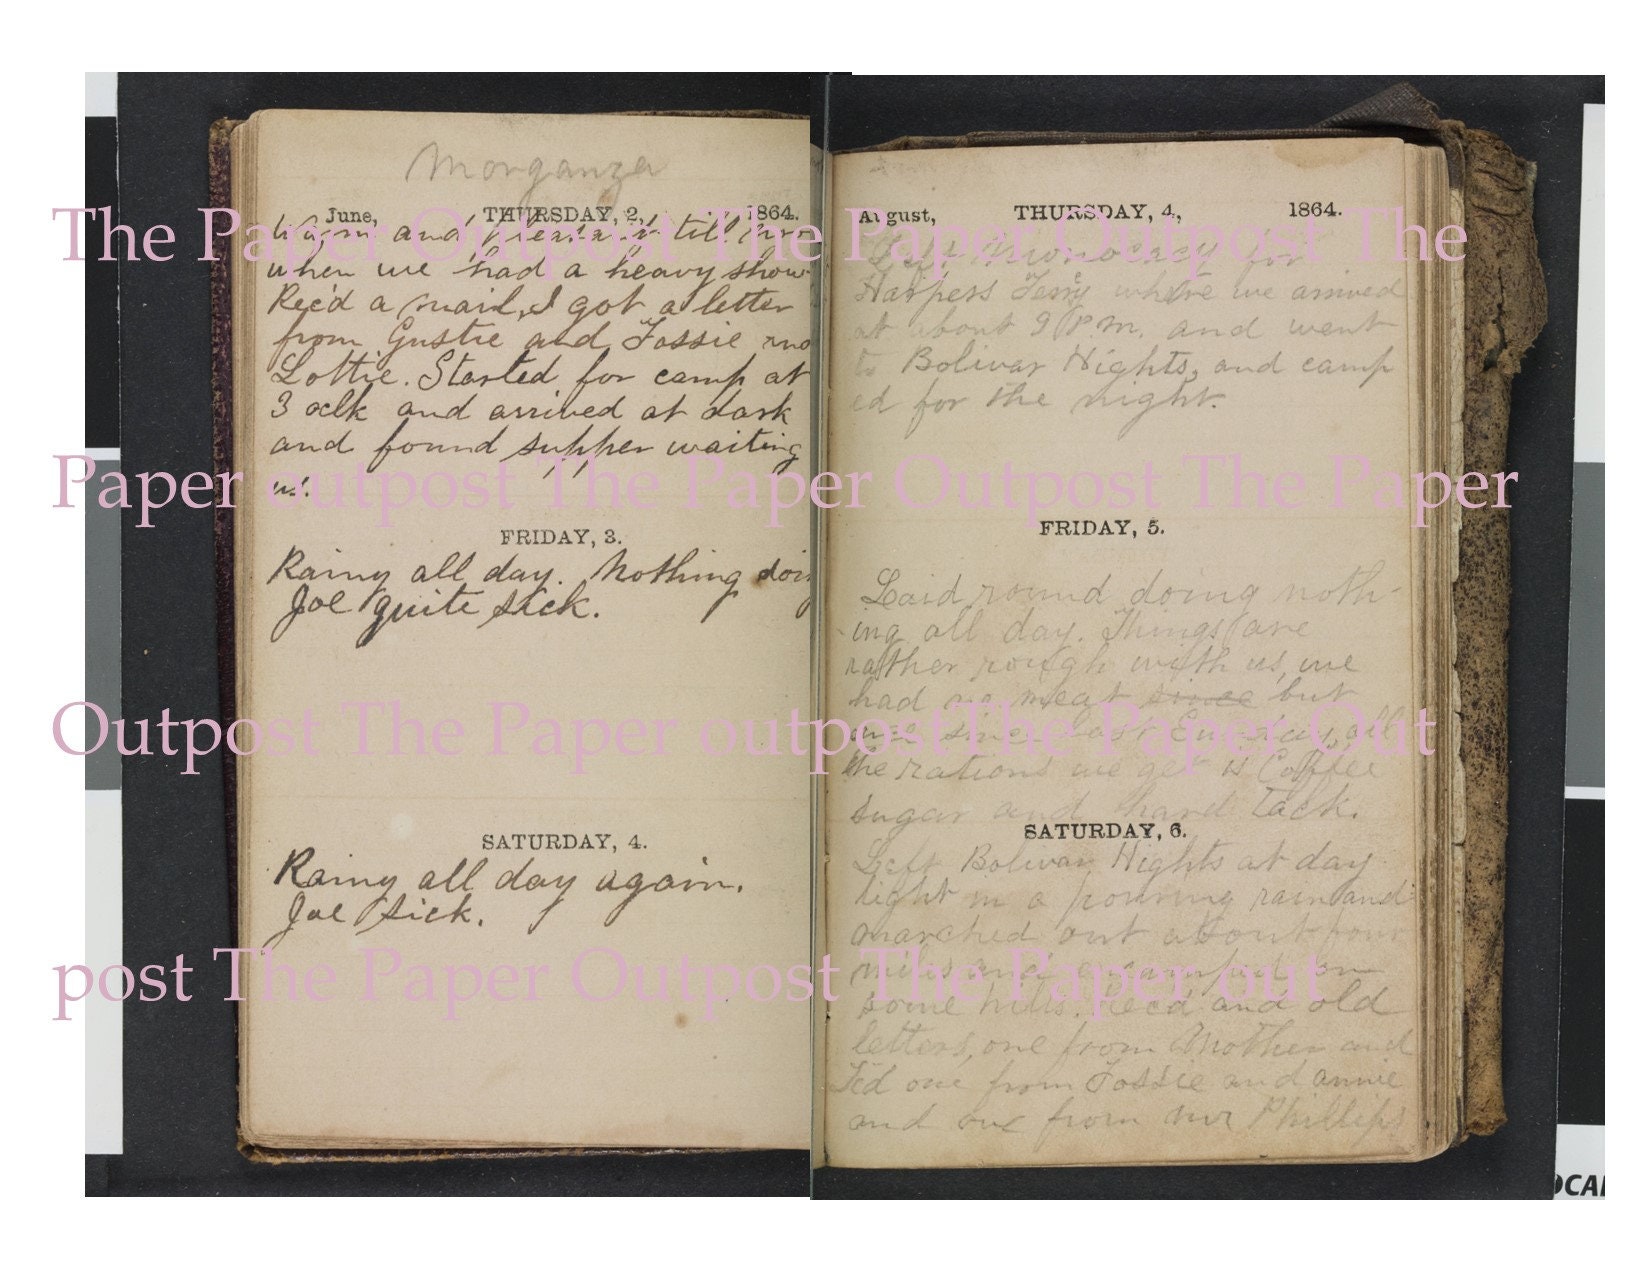 Morganza
June, THURSDAY, 2, 1864.
Warm and pleasant till
when we had a heavy show
Rec'd a mail, I got a letter
from Gustie and Fossie
Lottie. Started for camp at
3 oclk and arrived at dark
and found supper waiting
us.
FRIDAY, 3.
Rainy all day. Nothing doin
Joe quite sick.
SATURDAY, 4.
Rainy all day again.
Joe sick.
August, THURSDAY, 4, 1864.
Left Monocacy for
Harpers Ferry where we arrived
at about 9 P.M. and went
to Bolivar Hights, and camp
ed for the night.
FRIDAY, 5.
Laid round doing noth-
ing all day. Things are
rather rough with us, we
had no meat since but
once since last all
the rations we get is Coffee
sugar and hard tack.
SATURDAY, 6.
Left Bolivar Hights at day
light in a pouring rain and
marched out about four
miles and encamped on
some hills. Rec'd and old
letters, one from Mother and
Ed one from Fossie and annie
and one from Mr Phillips
The Paper Outpost The Paper Outpost The
Paper outpost The Paper Outpost The Paper
Outpost The Paper outpost The Paper Out
post The Paper Outpost The Paper out